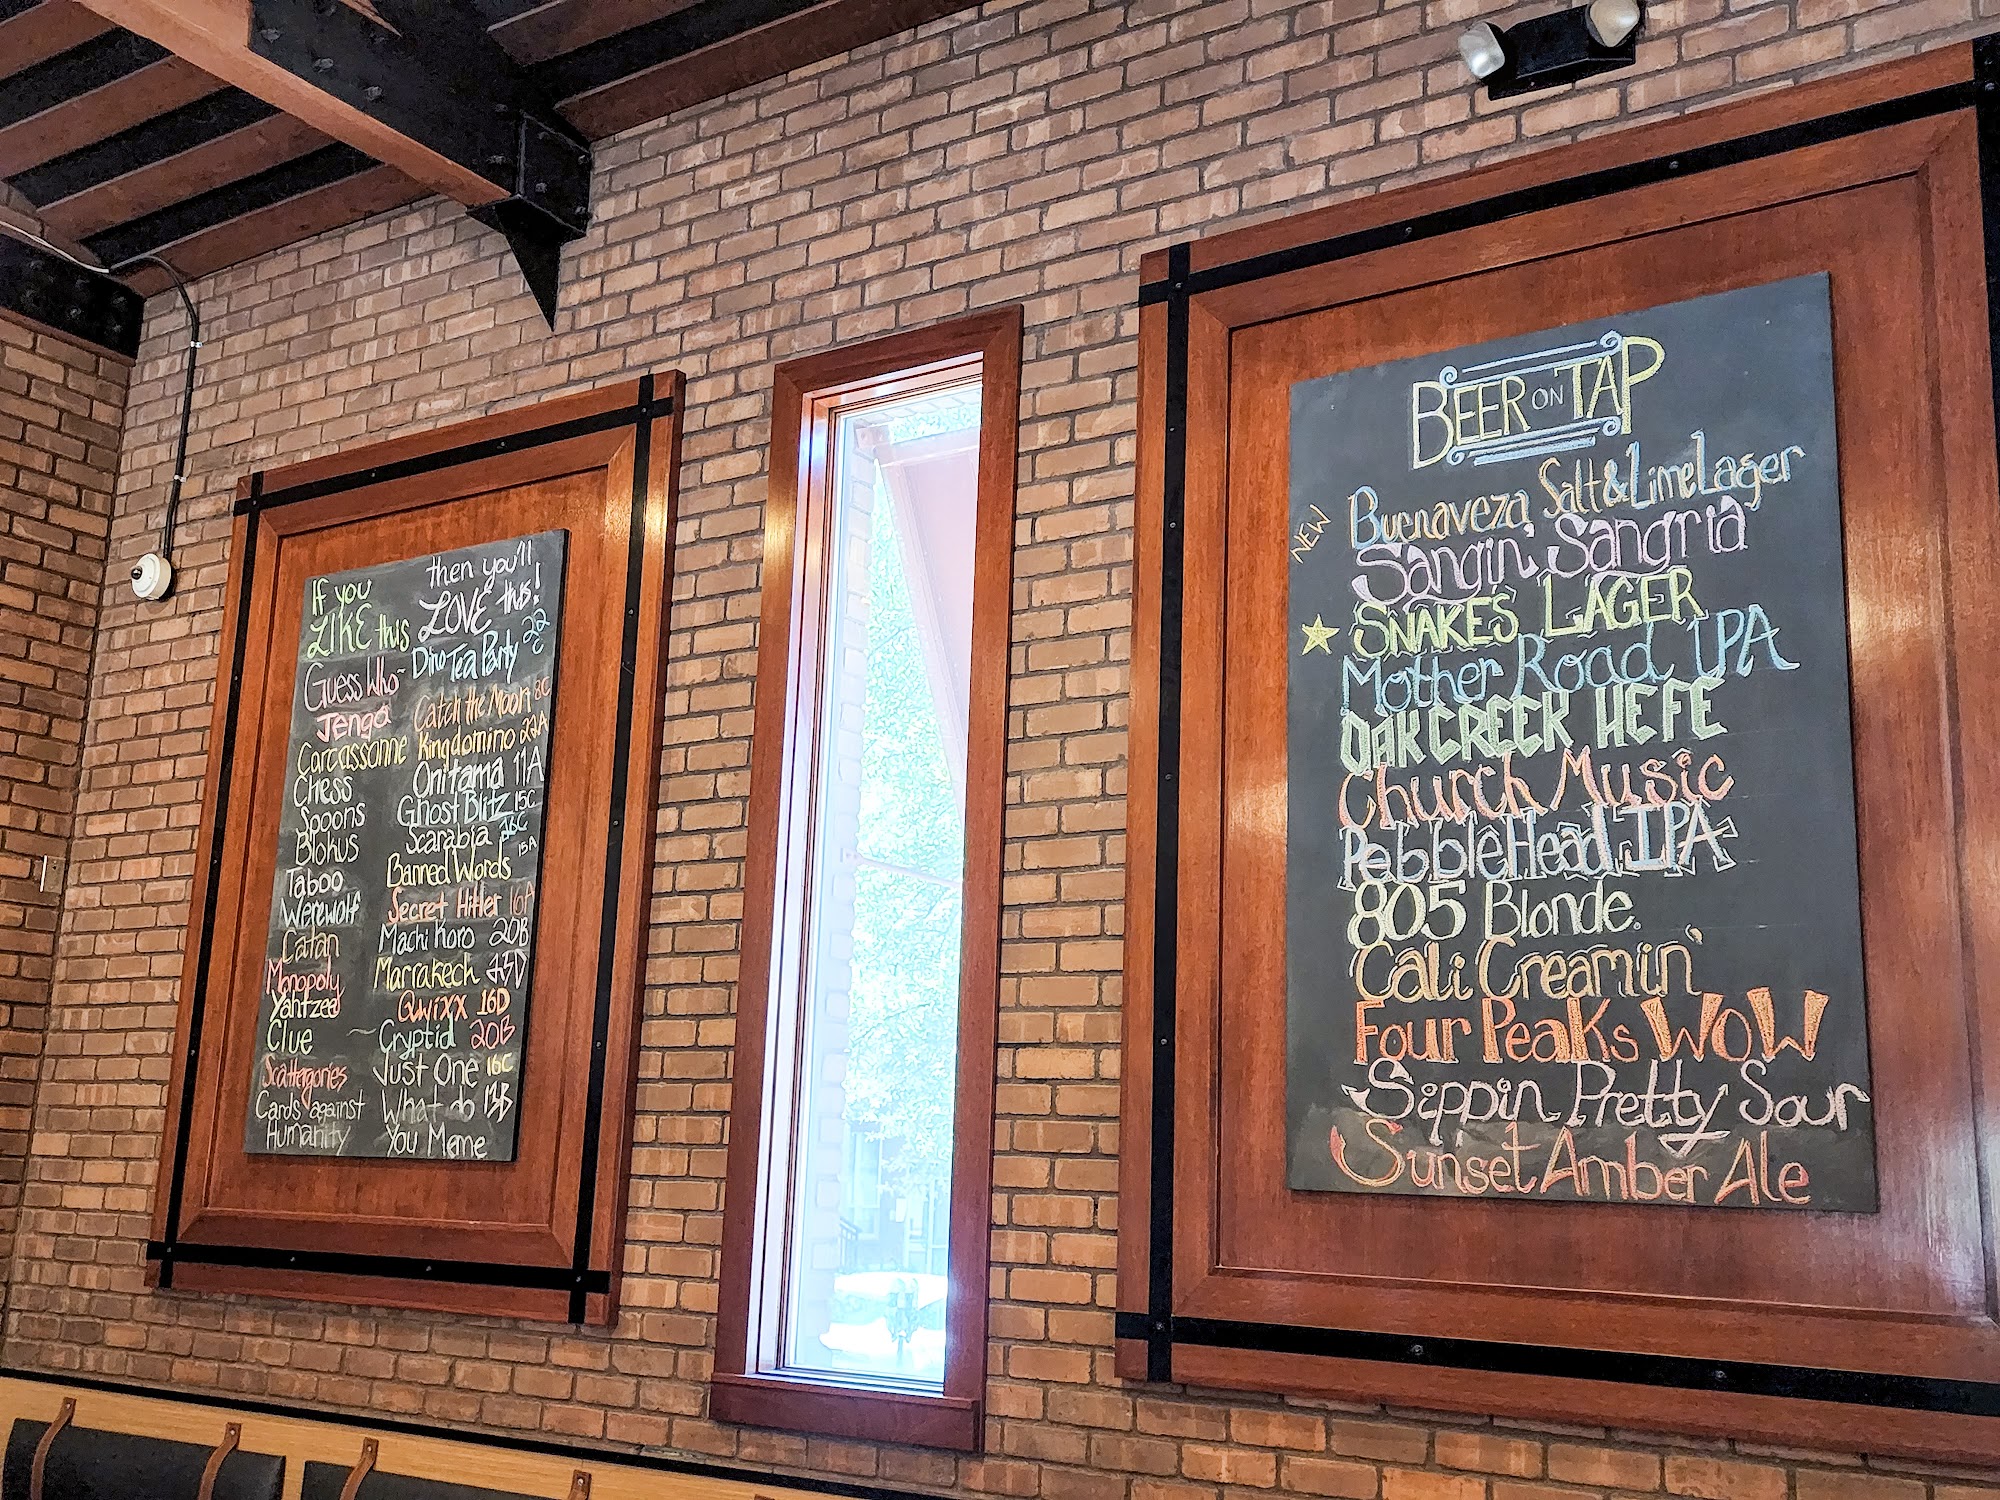 If you LIKE this then you'll LOVE this!
Guess Who- Dino Tea Party 22C
Jenga Catch the Moon 8C
Carcassonne Kingdomino 22A
Chess Onitama 11A
Spoons Ghost Blitz 15C
Blokus Scarabia 26C
Taboo Banned Words 15A
Werewolf Secret Hitler 16A
Catan Machi Koro 20B
Monopoly Marrakech 23D
Yahtzee Qwixx 16D
Clue ~ Cryptid 20B
Scattergories Just One 16C
Cards against What do 13B
Humanity You Meme
BEER ON TAP
NEW Buenaveza Salt & Lime Lager
Sangin' Sangria
SNAKES LAGER
Mother Road IPA
OAK CREEK HEFE
Church Music
PebbleHead IPA
805 Blonde.
Cali Creamin'
Four Peaks WOW
Sippin Pretty Sour
Sunset Amber Ale